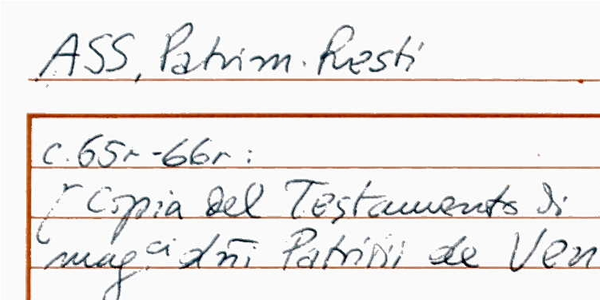 ASS, Patrim. Resti
c. 65r-66r:
[Copia del Testamento di
mag.ci dñi Patritii de Ven